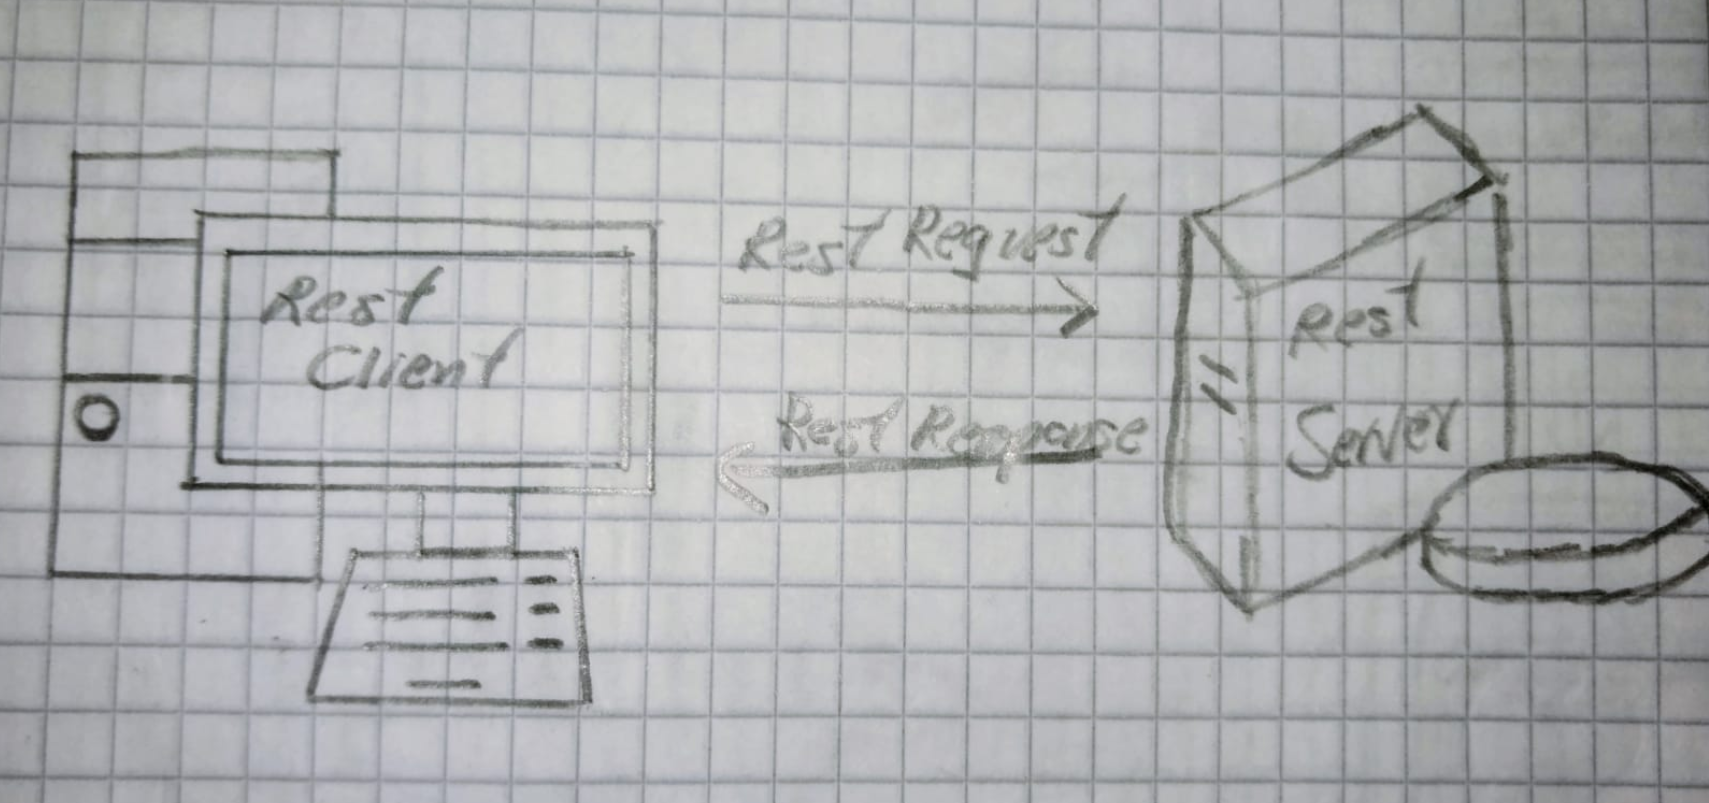 Rest
Client
Rest Request
Rest Response
Rest
Server